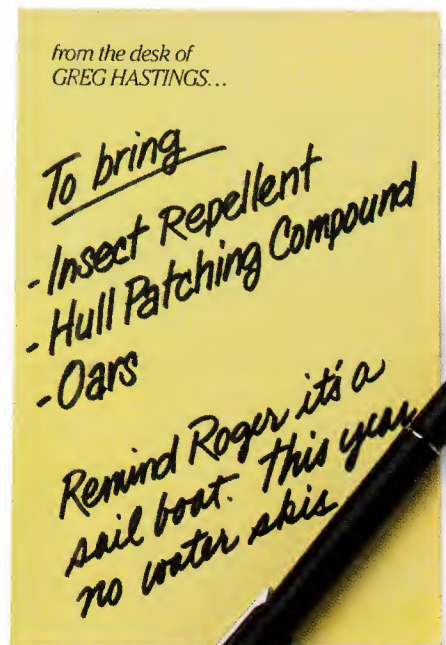 from the desk of
GREG HASTINGS...
To bring
-Insect Repellent
-Hull Patching Compound
-Oars
Remind Roger it's a
sail boat. This year
no water skis